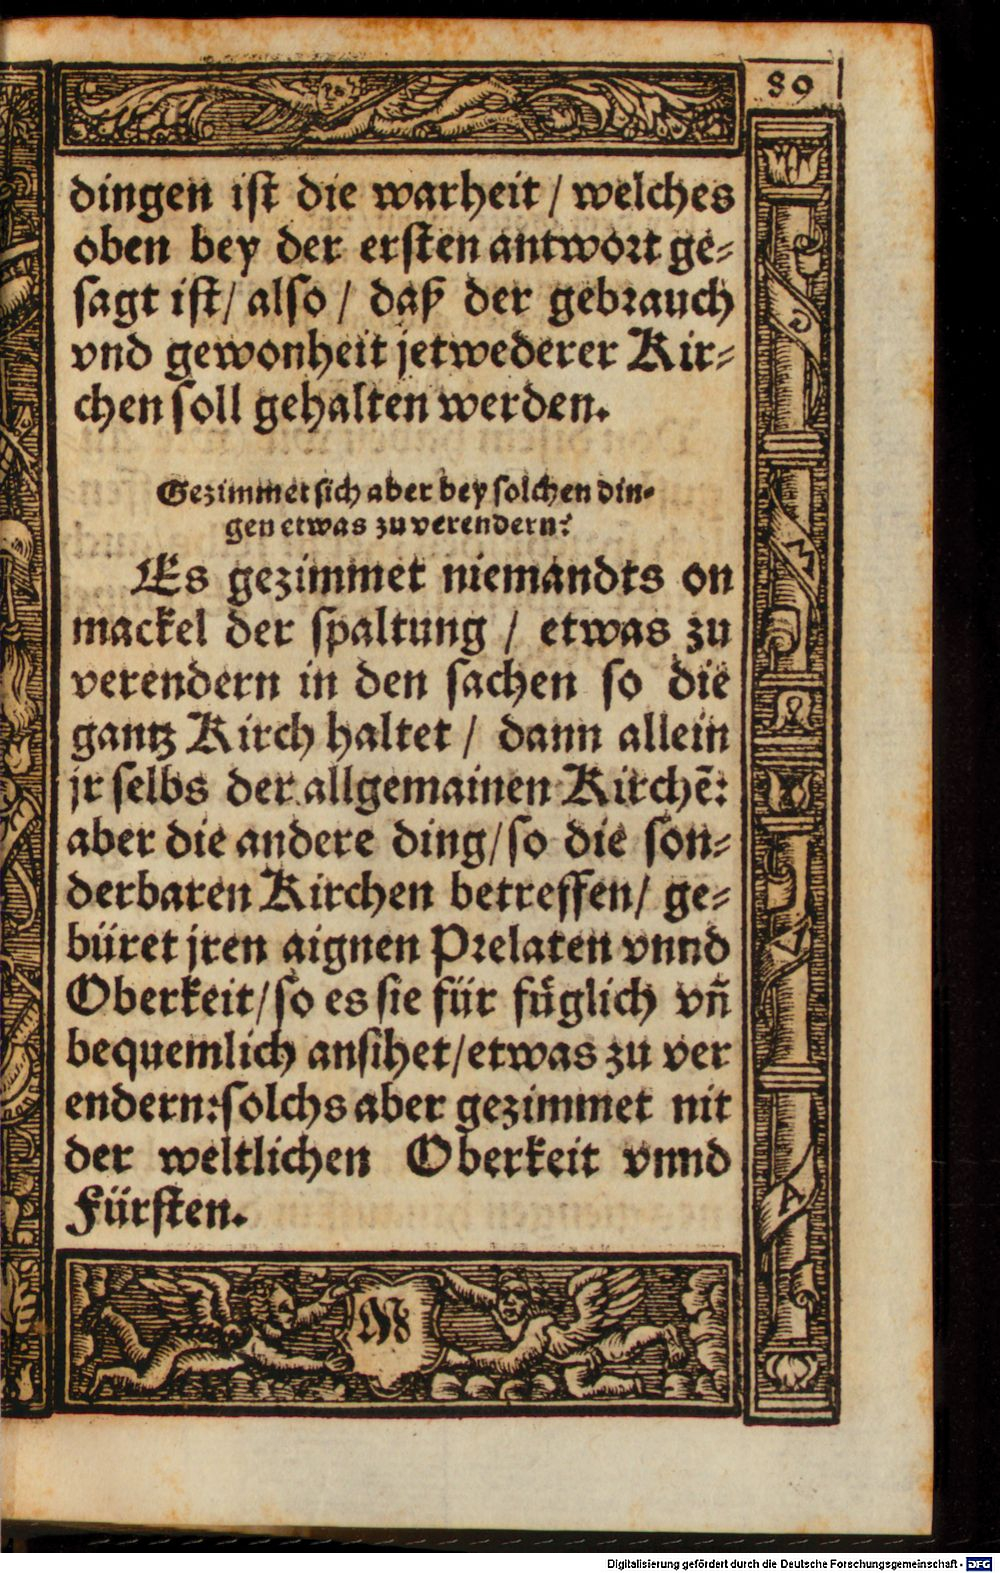 80
dingen iſt die warheit / welches
oben bey der erſten antwort ge⸗
ſagt iſt / alſo / daß der gebrauch
vnd gewonheit jetwederer Kir⸗
chen ſoll gehalten werden.
Gezimmet ſich aber bey ſolchen din⸗
gen etwas zu verendern?
Es gezimmet niemandts on
mackel der ſpaltung / etwas zu
verendern in den ſachen ſo die
gantz Kirch haltet / dann allein
jr ſelbs der allgemainen Kirchẽ:
aber die andere ding / ſo die ſon⸗
derbaren Kirchen betreffen / ge⸗
büret jren aignen Prelaten vnnd
Oberkeit / ſo es ſie für fůglich vñ
bequemlich anſihet / etwas zu ver
endern: ſolchs aber gezimmet nit
der weltlichen Oberkeit vnnd
Fürſten.
Digitalisierung gefördert durch die Deutsche Forschungsgemeinschaft - DFG